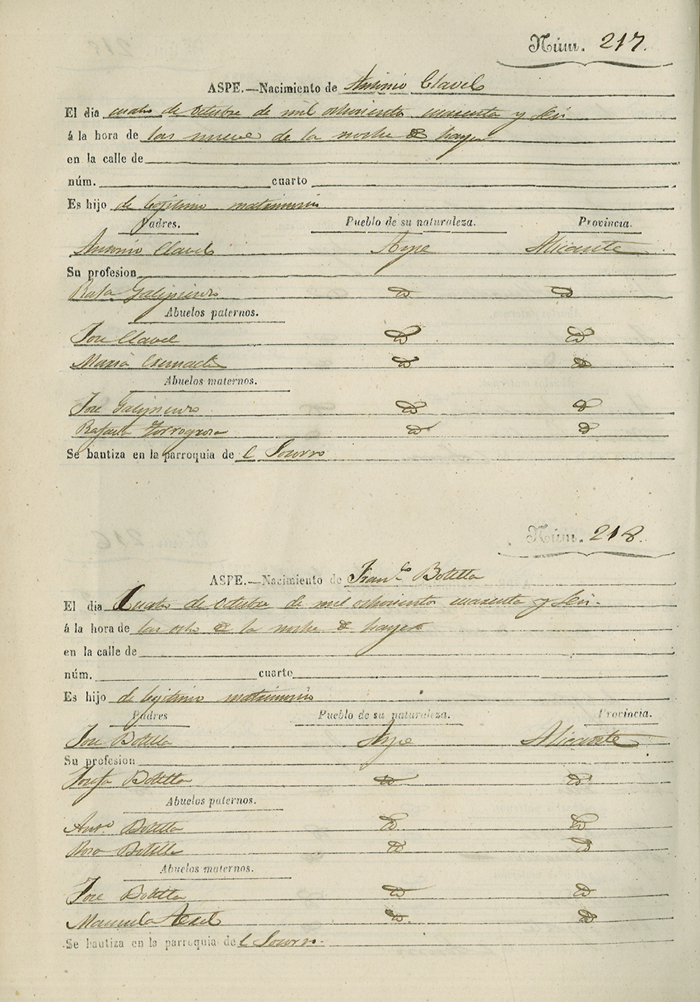 Núm. 217.
ASPE.—Nacimiento de Antonio Clavel
El dia cuatro de octubre de mil ochocientos cuarenta y seis
á la hora de las nueve de la noche de hayer
en la calle de
núm. cuarto
Es hijo de lejitimo matrimonio
Padres. Pueblo de su naturaleza. Provincia.
Antonio Clavel Aspe Alicante
Su profesion
Rafa Galipienso D D
Abuelos paternos.
Jose Clavel D D
Maria D D
Abuelos maternos.
Jose Galipienso D D
Rafaela Torregrosa D D
Se bautiza en la parroquia de l Socorro
Núm. 218.
ASPE.—Nacimiento de Franco Botella
El dia Cuatro de octubre de mil ochocientos cuarenta y seis.
á la hora de las ocho de la noche de hayer
en la calle de
núm. cuarto
Es hijo de lejitimo matrimonio
Padres Pueblo de su naturaleza. Provincia.
Jose Botella Aspe Alicante
Su profesion
Josefa Botella D D
Abuelos paternos.
Anto Botella D D
Rosa Botella D D
Abuelos maternos.
Jose Botella D D
Manuela D D
Se bautiza en la parroquia del Socorro.